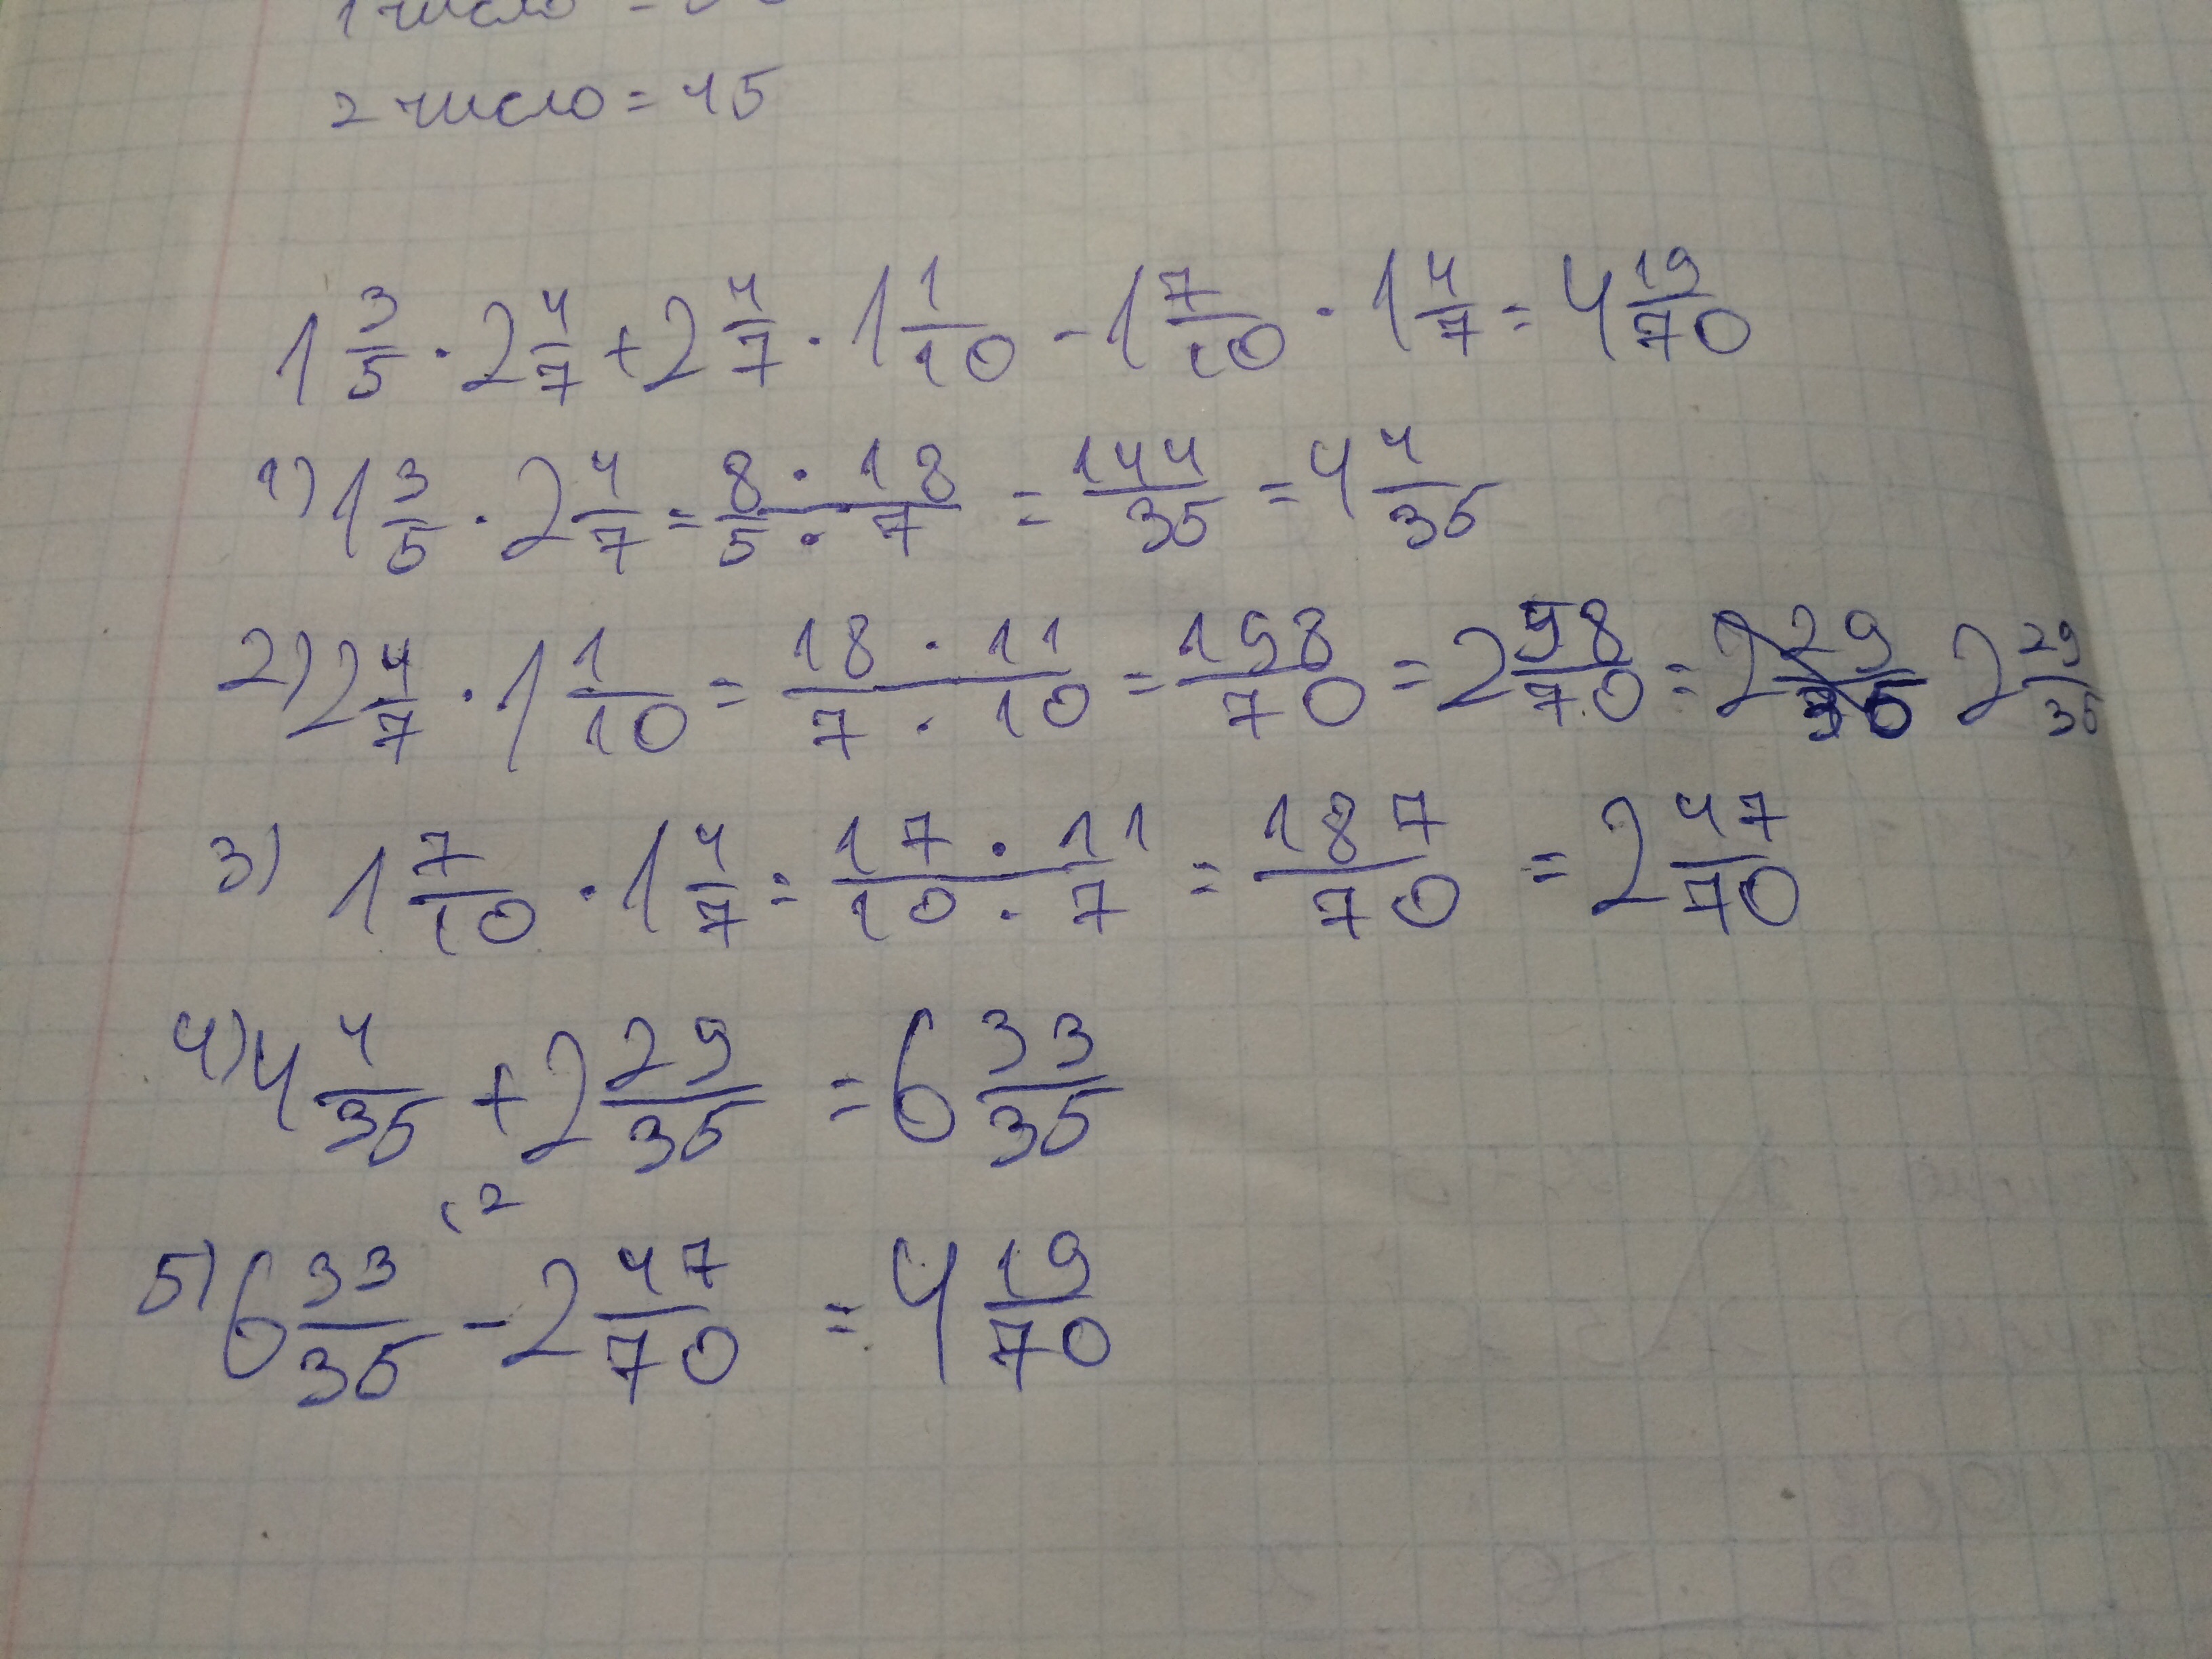 1 число =
2 число = 45
1 3/5 · 2 4/7 + 2 4/7 · 1 1/10 - 1 7/10 · 1 4/7 = 4 19/70
1) 1 3/5 · 2 4/7 = 8 · 18 / 5 · 7 = 144/35 = 4 4/35
2) 2 4/7 · 1 1/10 = 18 · 11 / 7 · 10 = 198/70 = 2 58/70 = 2 29/35 2 29/35
3) 1 7/10 · 1 4/7 = 17 · 11 / 10 · 7 = 187/70 = 2 47/70
4) 4 4/35 + 2 29/35 = 6 33/35
(2
5) 6 33/35 - 2 47/70 = 4 19/70